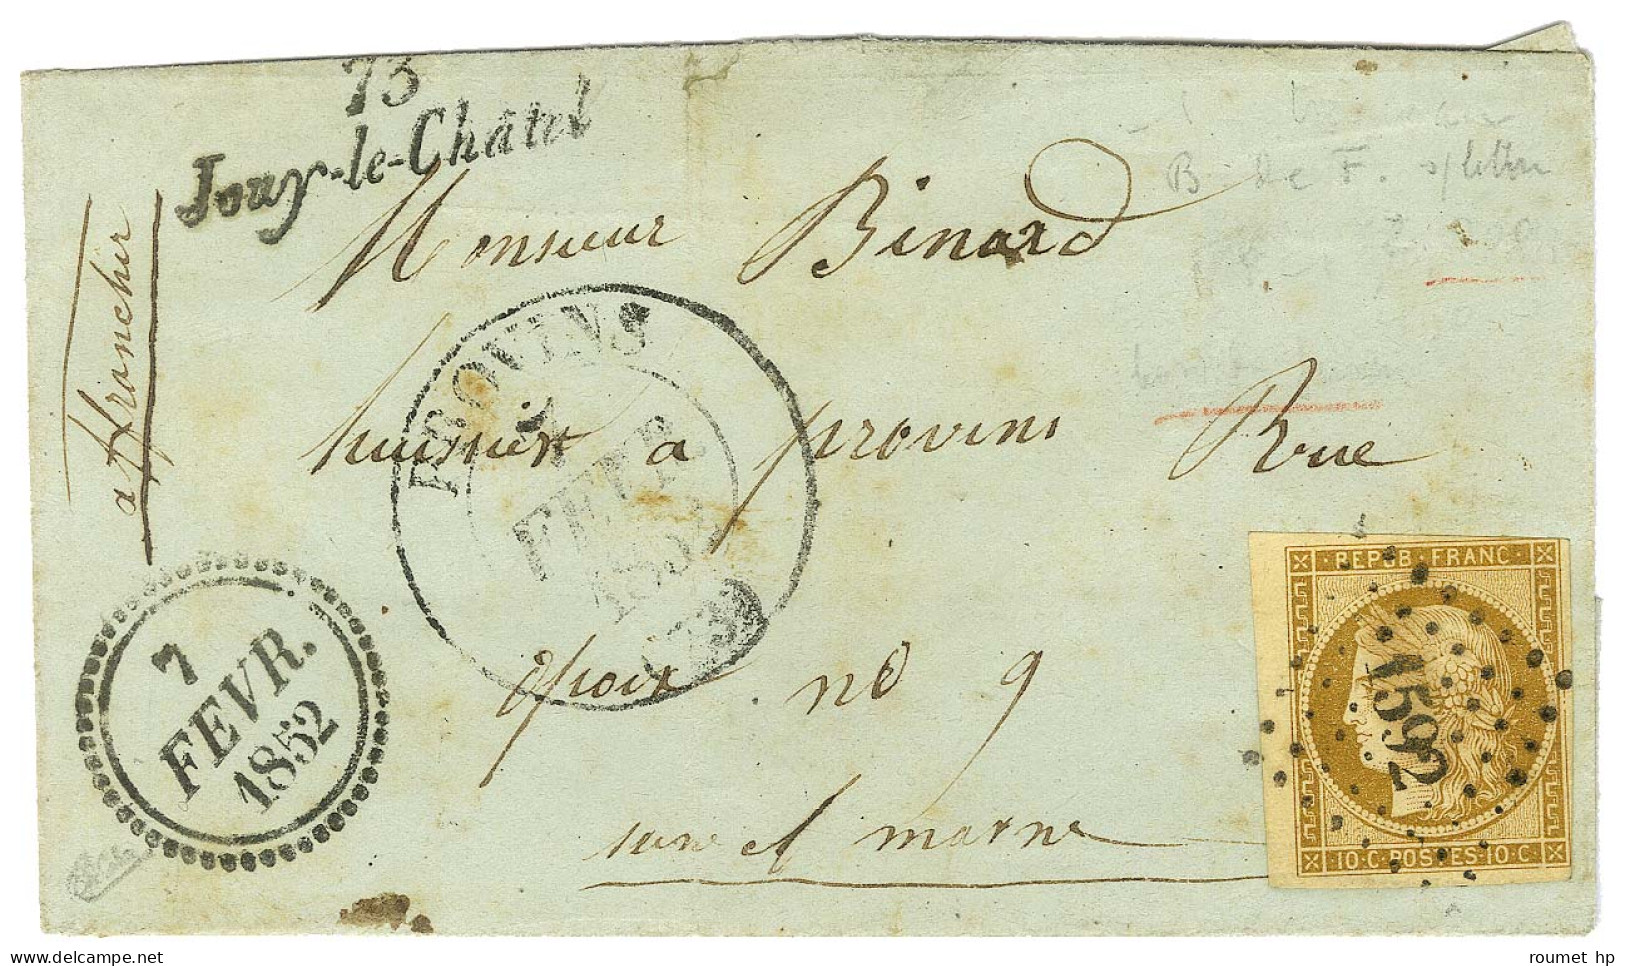 73
Jouy-le-Châtel
a affranchir
Monsieur Binard
B de F. s/lettre
PROVINS
7
FEVR.
1852
(73)
huissier a provins Rue
7
FEVR.
1852
opoix no 9
REPUB·FRANC·
2592
10·C·POSTES·10·C
seine et marne
© roumet hp